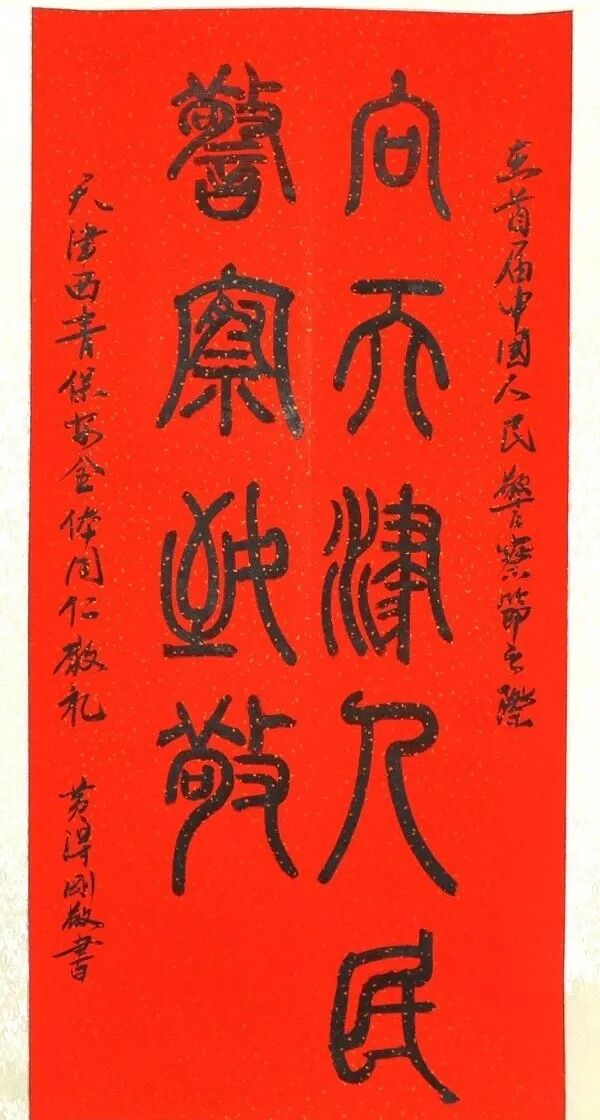 在首届中国人民警察节之际
向天津人民
警察致敬
天津西青保安全体同仁敬礼
黄得刚敬书